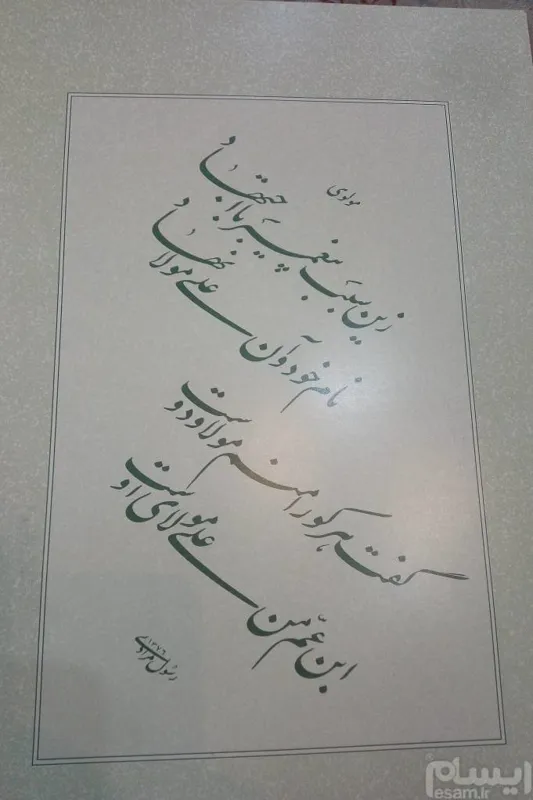 مولوی
زین سبب پیغمبر با اجتهاد
نام خود وآن علی مولا نهاد
گفت هر کو را منم مولا و دوست
ابن عم من علی مولای اوست
رسول مرادی ۱۳۷۶
ایسام
esam.ir